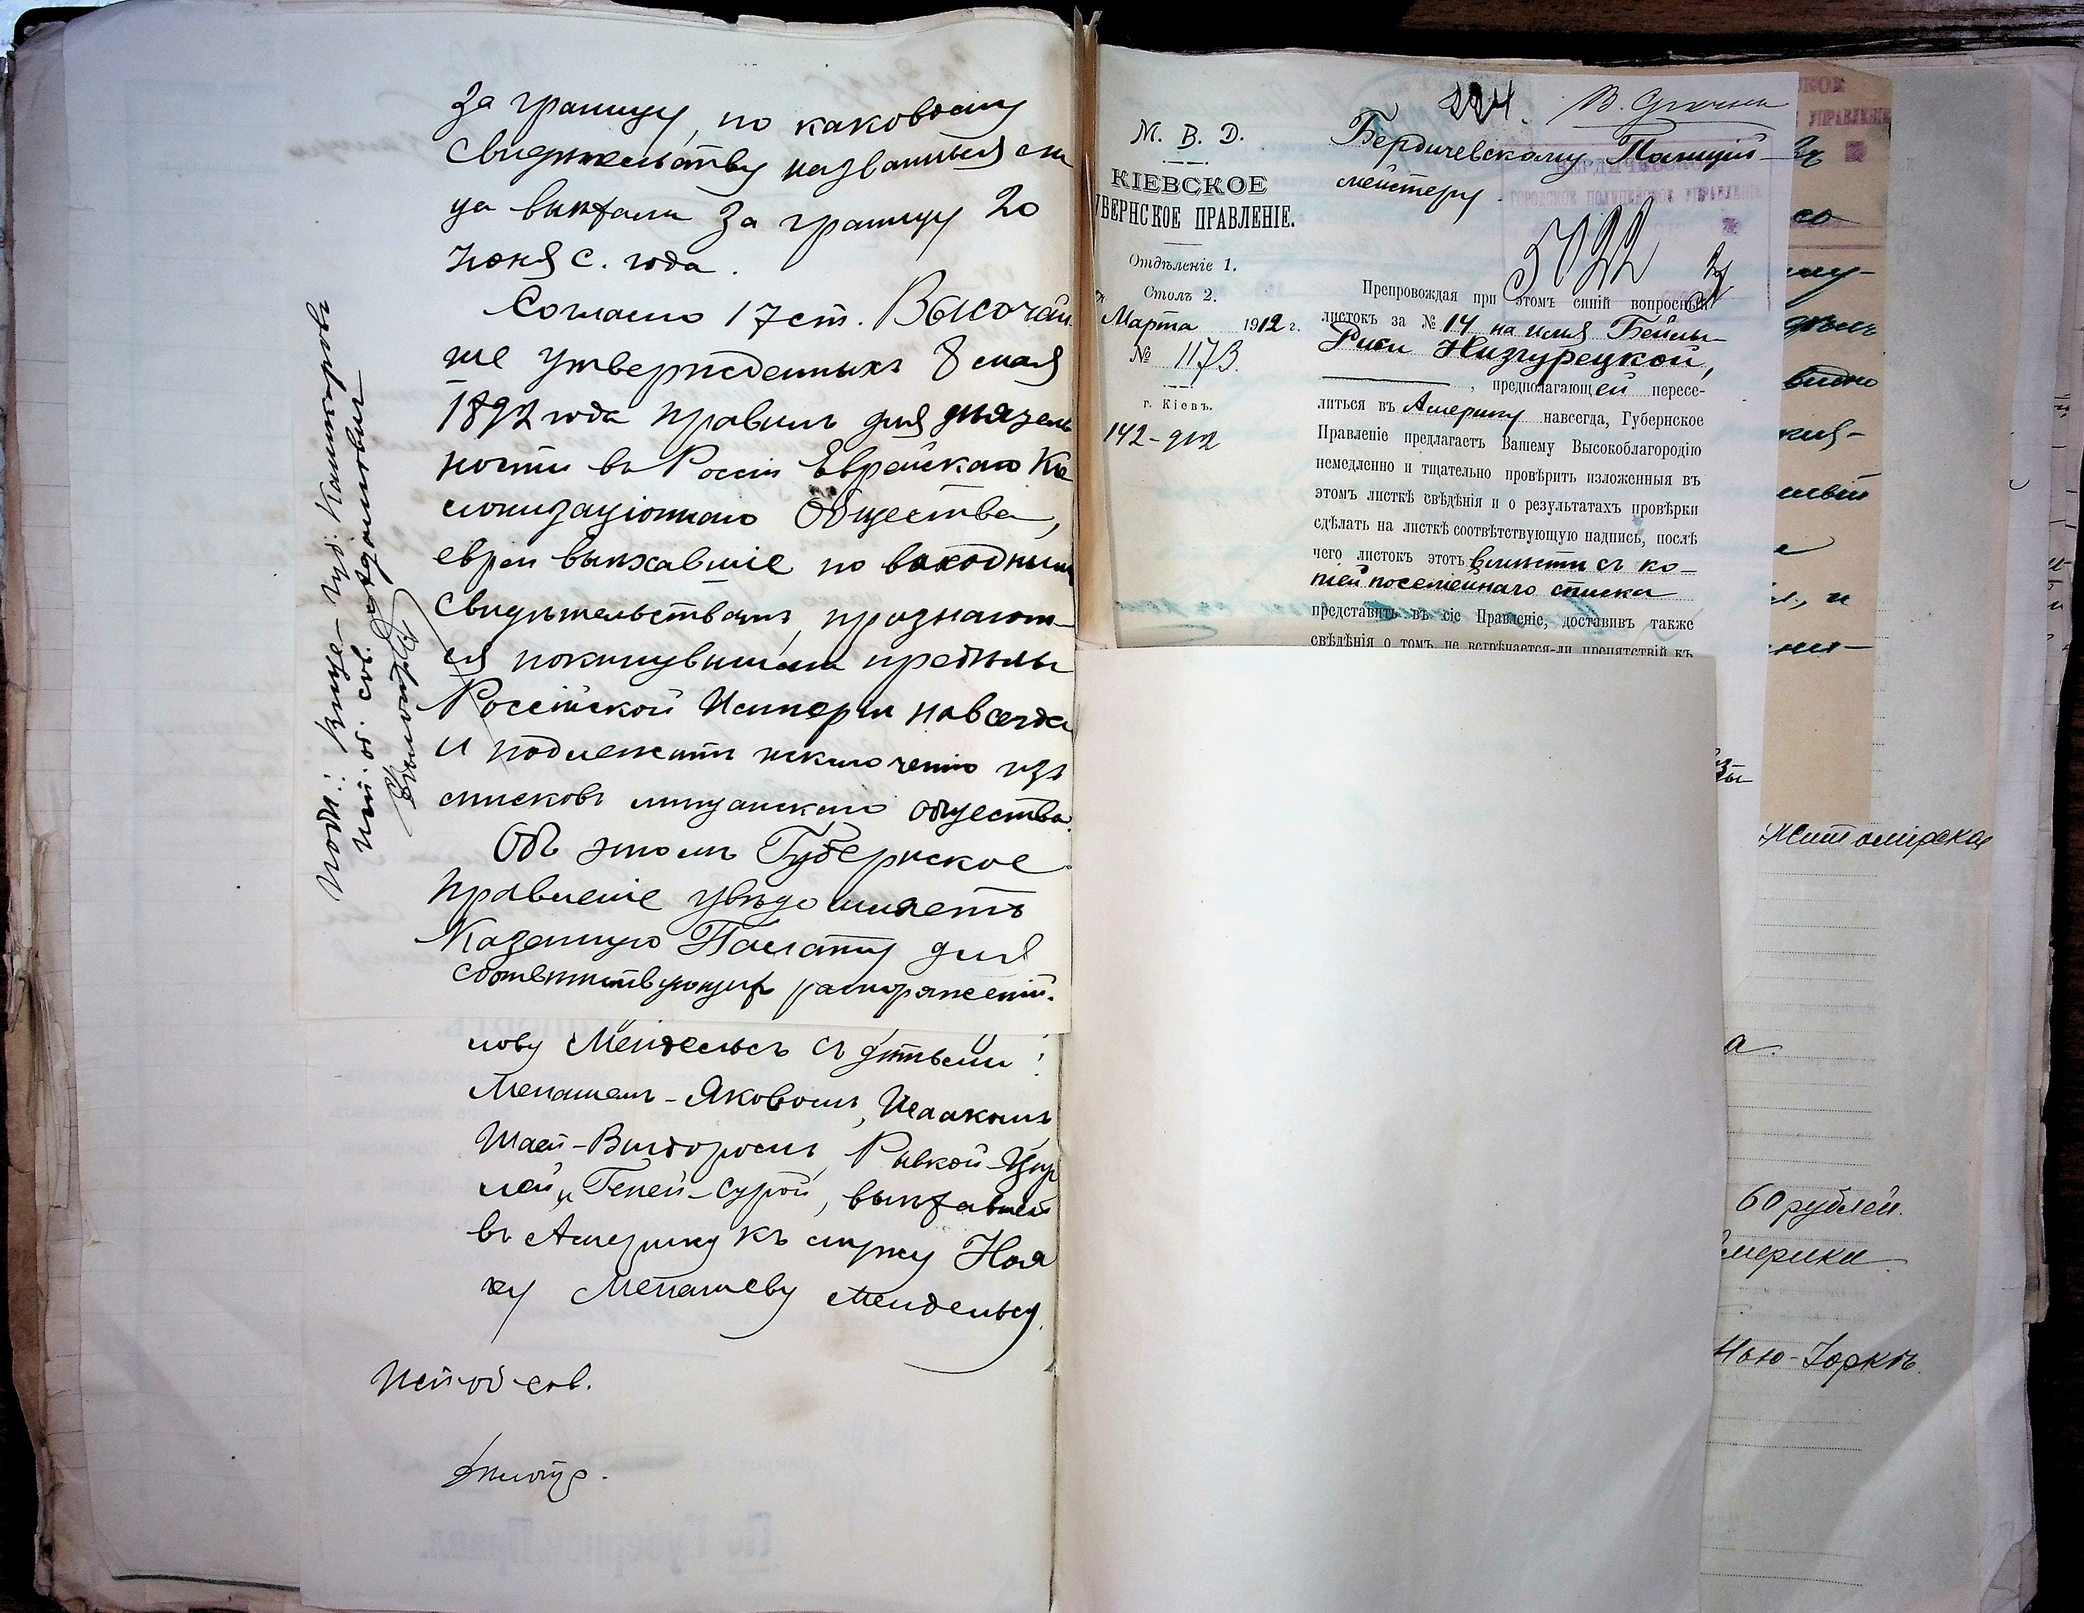 за границу, по каковому
свидѣтельству названныя ли
ца выѣхали за границу 20
Іюня с. года.
Согласно 17 ст. Высочай
ше утвержденныхъ 8 мая
1892 года правилъ для дѣятель
ности въ Россіи Еврейскаго Ко
лонизаціоннаго Общества,
евреи выѣхавшіе по выходнымъ
свидѣтельствамъ, признают-
ся покинувшими предѣлы
Россійской Имперіи навсегда
и подлежатъ исключенію изъ
списковъ мѣщанскаго общества.
Объ этомъ Губернское
Правленіе увѣдомляетъ
Казенную Палату для
соотвѣтствующихъ распоряженій.
Подп.: Вице-Губ. Кашкаровъ
Исп. об. сов.
лову Мендельсъ съ дѣтьми:
Менашемъ-Яковомъ, Исаакомъ
Шаей-Вигдоромъ, Рывкой-Цир
лей и Геней-Сурой, выѣхавшей
въ Америку къ мужу Ноя
ху Менашеву Мендельсу.
Исп. об. сов.
224.
М. В. Д.
КІЕВСКОЕ
УБЕРНСКОЕ ПРАВЛЕНІЕ.
Отдѣленіе 1.
Столъ 2.
Марта 1912 г.
№ 1173.
г. Кіевъ.
142-
Бердичевскому Полицій-
мейстеру
БЕРДИЧЕВСКОЕ
ГОРОДСКОЕ ПОЛИЦЕЙСКОЕ УПРАВЛЕНІЕ
5022
Препровождая при этомъ синій вопросный
листокъ за № 14 на имя Бейлы-
Рики Низгурецкой,
, предполагающей пересе-
литься въ Америку навсегда, Губернское
Правленіе предлагаетъ Вашему Высокоблагородію
немедленно и тщательно провѣрить изложенныя въ
этомъ листкѣ свѣдѣнія и о результатахъ провѣрки
сдѣлать на листкѣ соотвѣтствующую надпись, послѣ
чего листокъ этотъ вмѣстѣ съ ко-
піей посемейнаго списка
представить въ сіе Правленіе, доставивъ также
свѣдѣнія о томъ, не встрѣчается-ли препятствій къ
СКОЕ
УПРАВЛЕНІЕ
Житомирская
а.
60 рублей.
мерика
Нью-Іоркъ.